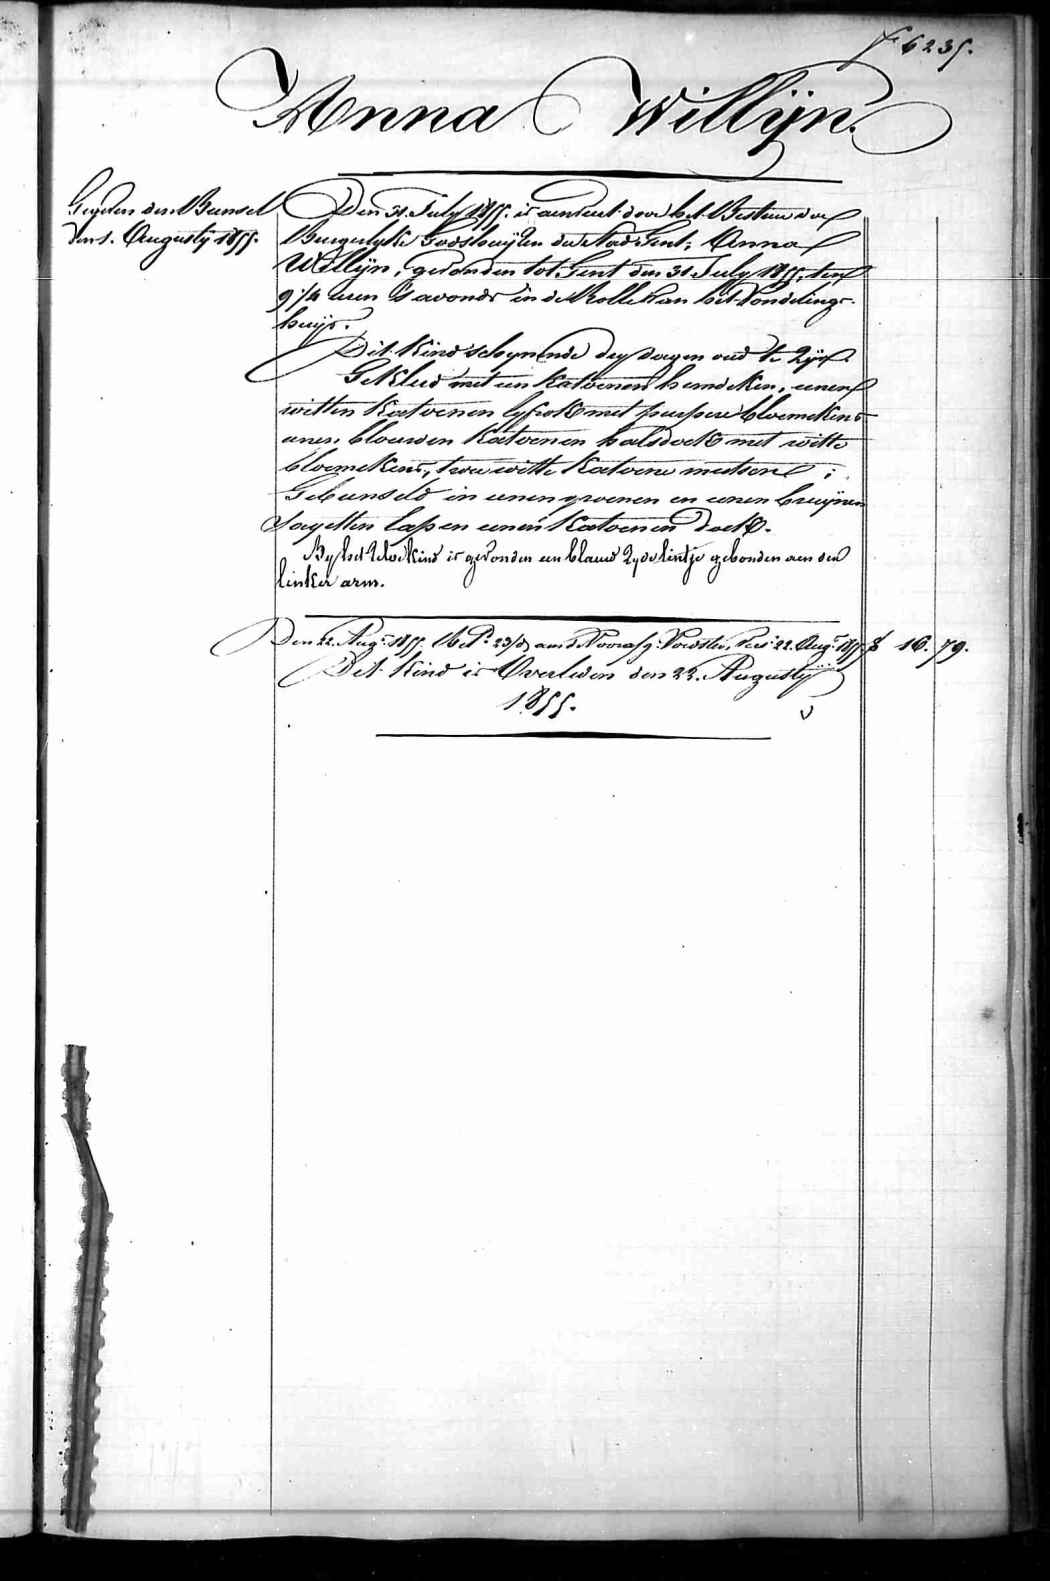 f 6235.
Anna Willijn.
Gegeven den Bunsel
den 1. Augustij 1855.
Den 31. July 1855. is aenveert door het Bestuer der
Burgerlyke Godshuyzen der Stad Gent; Anna
Willijn, gevonden tot Gent den 31 July 1855, ten
9 1/4 uren 's avonds in de Rolle van het Vondelings-
huijs.
Dit Kind schynende dry dagen oud te zyn.
Gekleed met een katoenen hemdeken, eenen
witten katoenen lyfrok met purpere bloemekens
eenen blauwen katoenen halsdoek met witte
bloemekens, twee witte katoene mutsen;
Gebunseld in eenen groenen en eenen bruynen
sayetten lap en eenen katoenen doek.
By het zelve kind is gevonden een blauw zyde lintje gebonden aen den
linker arm.
Den 22. Aug. 1855. 23/d aen 22. Aug. 1855 f 16. 79.
Dit Kind is Overleden den 22. Augustij
1855.